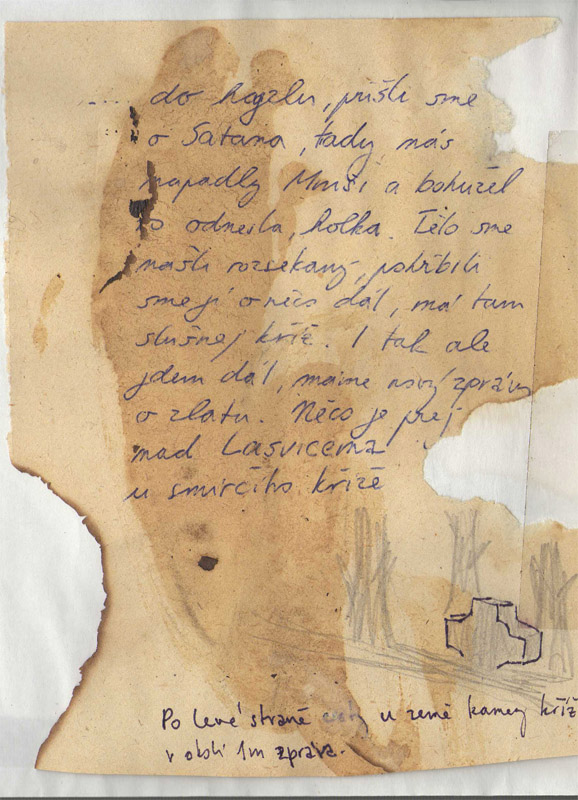 ... do hogzlu, přišli sme
o Satana, tady nás
napadly Mniši a bohužel
to odnesla, holka. Tělo sme
našli rozsekaný, pohřbili
sme jí o něco dál, má tam
slušnej kříž. I tak ale
jdem dál, máme nový zprávy
o zlatu. Něco je prej
nad Lasvicema
u smírčího kříže
Po levé straně cesty u země kamenný kříž
v okolí 1m zpráva.